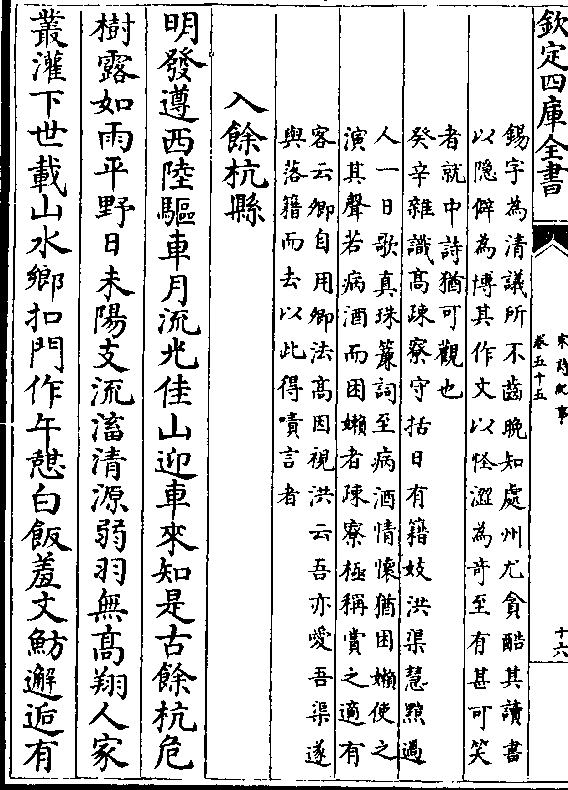 欽定四庫全書
宋詩紀事
卷五十五
十六
錫字為清議所不齒晩知處州尤貪酷其讀書
以隱僻為博其作文以怪澀為竒至有甚可笑
者就中詩猶可觀也
癸辛雜識髙疎寮守括日有籍妓洪渠慧黠過
人一日歌真珠簾詞至病酒情懷猶困嬾使之
演其聲若病酒而困嬾者疎寮極稱賞之適有
客云卿自用卿法髙因視洪云吾亦愛吾渠遂
與落籍而去以此得嘖言者
入餘杭縣
明發遵西陸驅車月流光佳山迎車來知是古餘杭危
樹露如雨平野日未陽支流滀清源弱羽無髙翔人家
叢灌下世載山水鄉扣門作午憇白飯羞文魴邂逅有